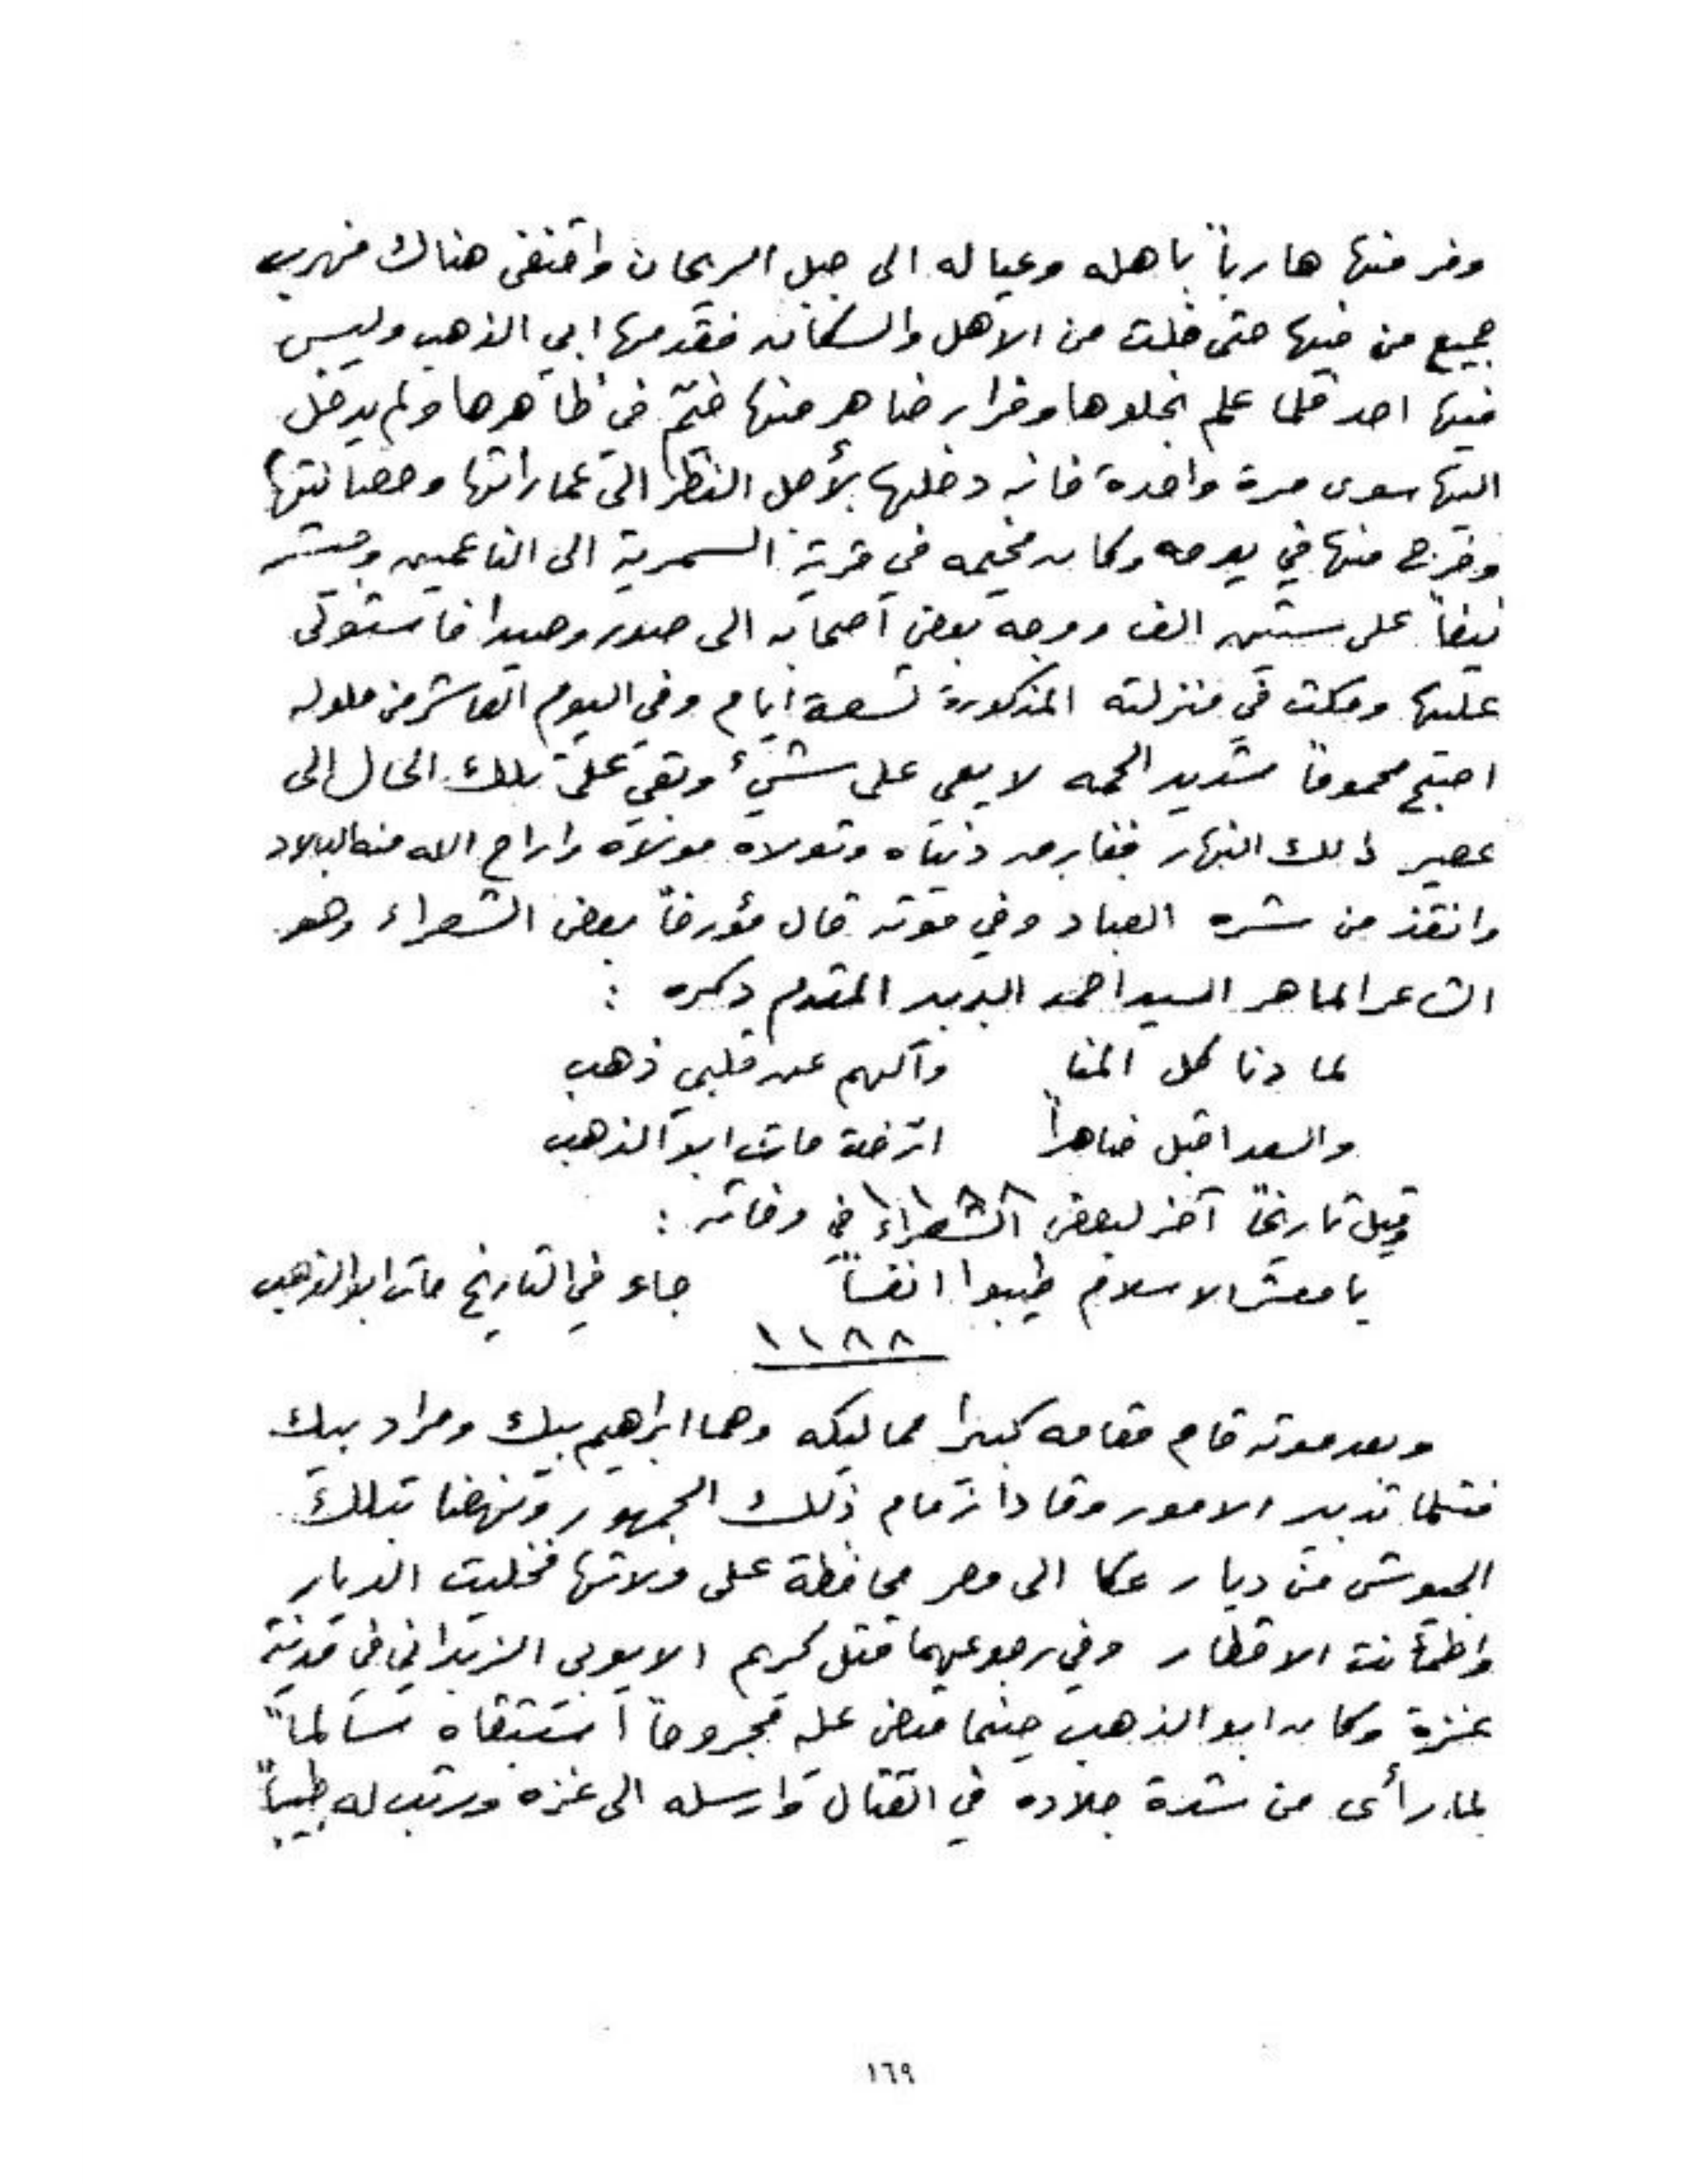 وفر منها هارباً باهله وعياله الى جبل الريحان واختفى هناك فهرب
جميع من فيها حتى خلت من الاهل والسكان فقدمها ابي الذهب وليس
فيها احد فلما علم بخلوها وفرار ضاهر منها خيّم في ظاهرها ولم يدخل
اليها سوى مرة واحدة فانه دخلها لأجل النظر الى عماراتها وحصانتها
وخرج منها في يومه وكان مخيمه في قرية السمرية الى الناعمين وجيشه
نيفاً على ستين الف ووجه بعض اصحابه الى صور وصيدا فاستولى
عليها ومكث في منزلته المذكورة تسعة ايام وفي اليوم العاشر من حلوله
اصبح محموماً شديد الحمه لا يعي على شيء وبقي على تلك الحال الى
عصير ذلك النهار ففارق دنياه وتولاه مولاه واراح الله منه البلاد
وانقذ من شره العباد وفي موته قال مؤرخاً بعض الشعراء وهو
الشاعر الماهر السيد احمد البربير المقدم ذكره :
لما دنا كل المنا وآلهم عن قلبي ذهب
والسعد اقبل ضاهراً ارّخت مات ابو الذهب
١١٨٨
وقيل تاريخاً آخر لبعض الشعراء في وفاته :
يا معشر الاسلام طيبوا انفساً جاء في التاريخ مات ابو الذهب
١١٨٨
وبعد موته قام مقامه كبيرا مماليكه وهما ابراهيم بيك ومراد بيك
فتسلما تدبير الامور وقادا زمام ذلك الجمهور ونهضا بتلك
الجيوش من ديار عكا الى مصر محافظة على ولاتها فخليت الديار
واطمأنت الاقطار وفي رجوعهما قتل كريم الايوبي الزيداني في مدينة
غزة وكان ابو الذهب حينما قبض عليه مجروحاً استبقاه سالماً
لما رأى من شدة جلاده في القتال وارسله الى غزه ورتب له طبيباً
١٦٩